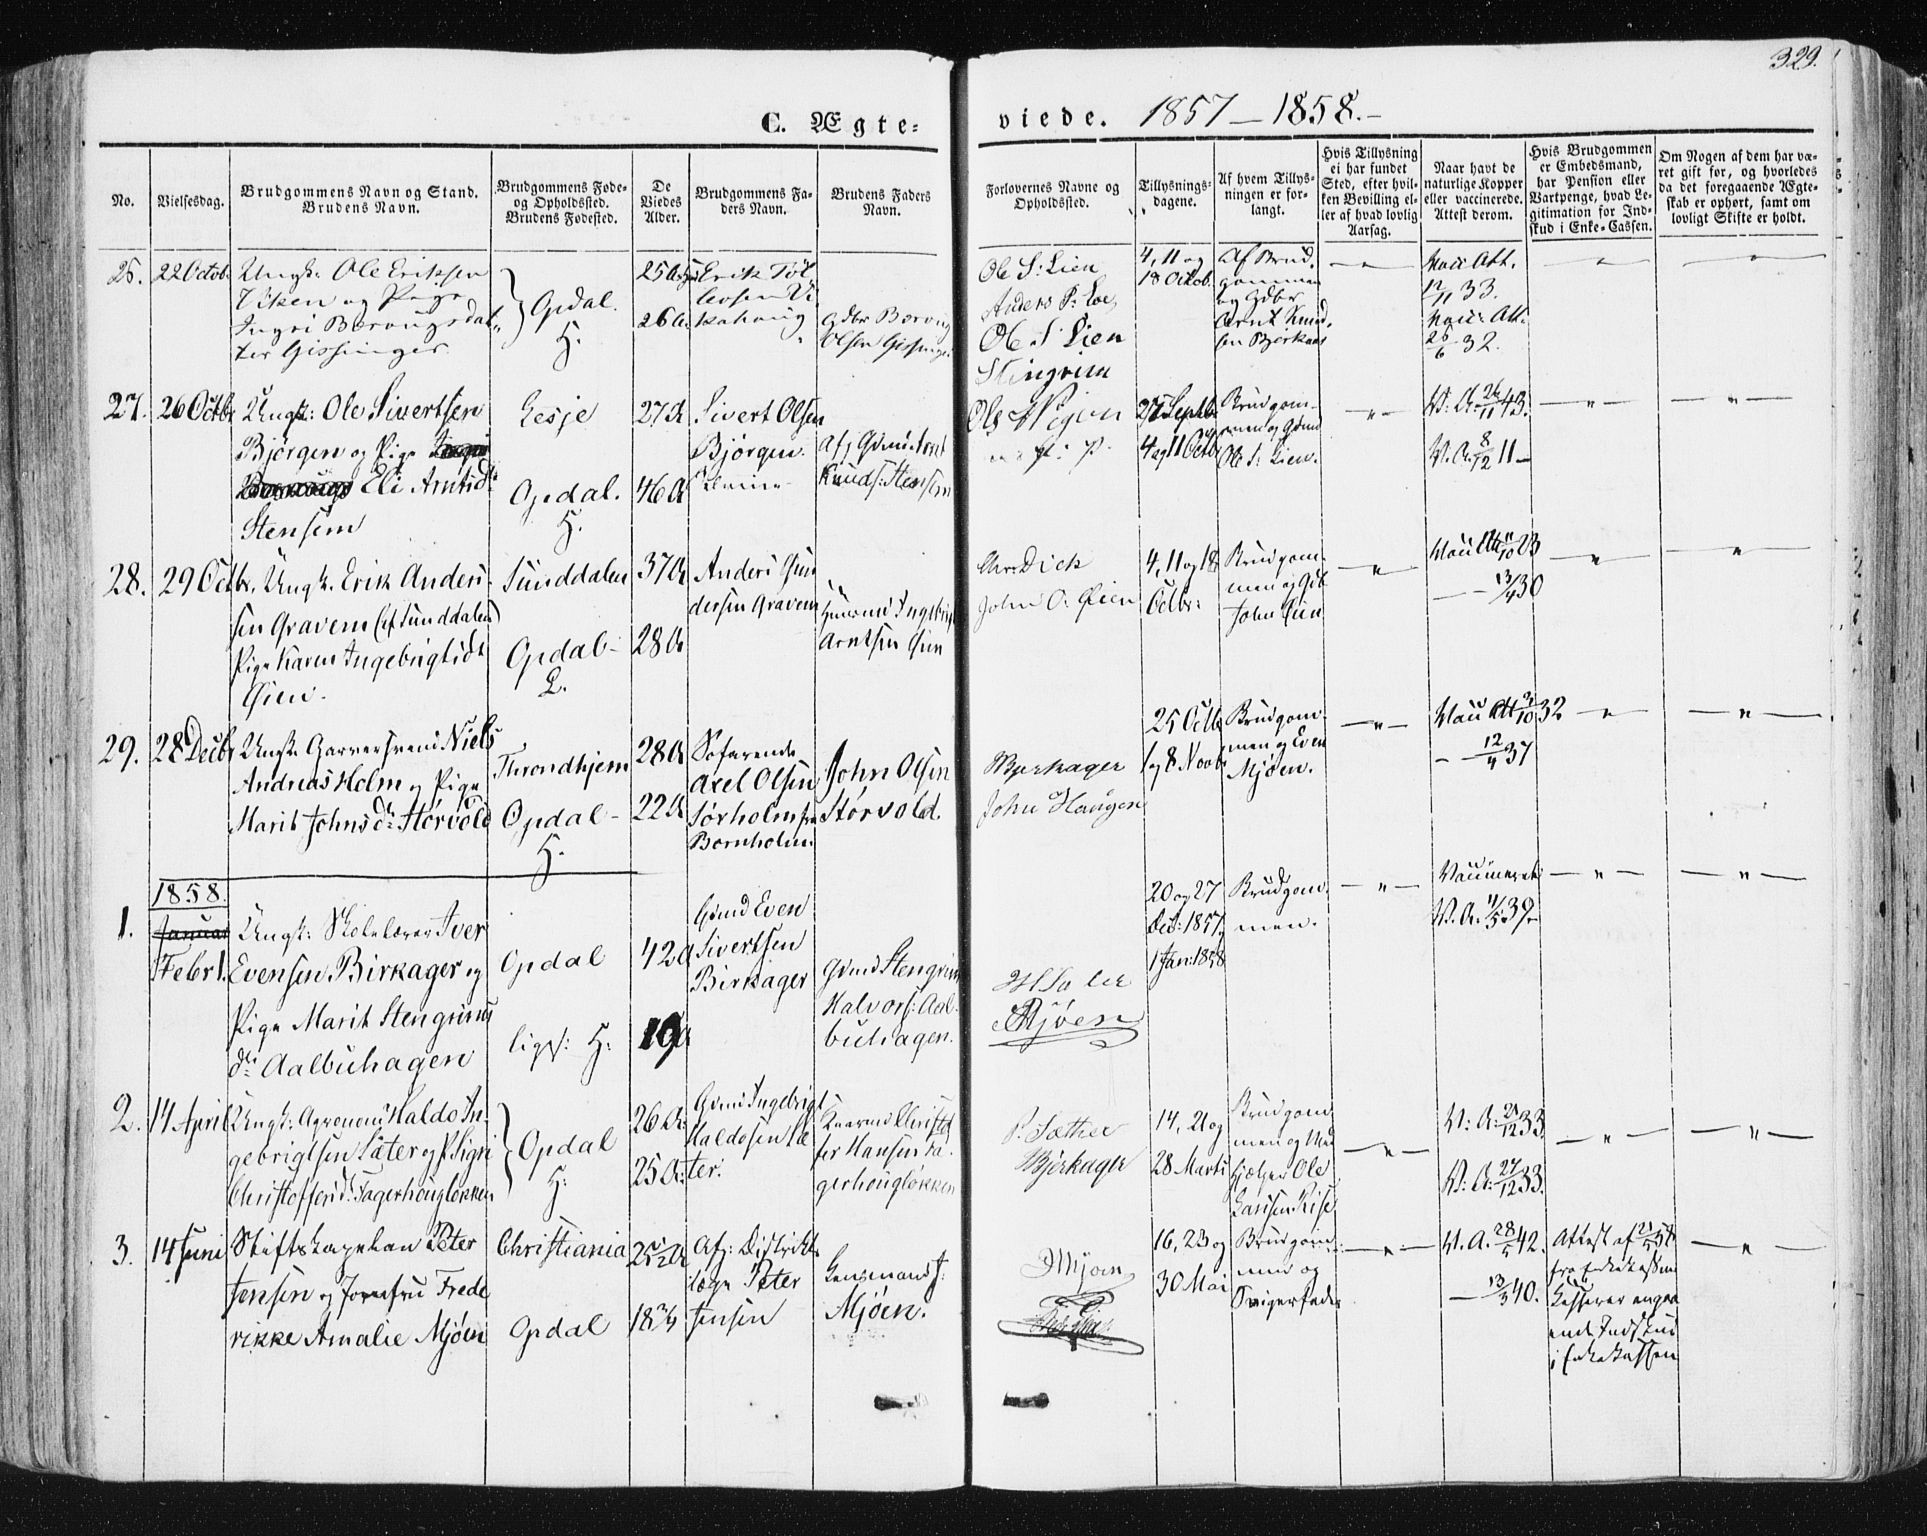 329.
C. Ægte- viede. 1857—1858.—
No.
Vielsesdag.
Brudgommens Navn og Stand.
Brudens Navn.
Brudgommens Føde-
og Opholdssted.
Brudens Fødested.
De
Viedes
Alder.
Brudgommens Fa-
ders Navn.
Brudens Faders
Navn.
Forlovernes Navne og
Opholdssted.
Tillysnings-
dagene.
Af hvem Tillys-
ningen er for-
langt.
Hvis Tillysning
ei har fundet
Sted, efter hvil-
ken Bevilling el-
ler af hvad lovlig
Aarsag.
Naar havt de
naturlige Kopper
eller vaccinerede.
Attest derom.
Hvis Brudgommen
er Embedsmand,
har Pension eller
Vartpenge, hvad Le-
gitimation for Ind-
skud i Enke-Cassen.
Om Nogen af dem har væ-
ret gift før, og hvorledes
da det foregaaende Ægte-
skab er ophørt, samt om
lovligt Skifte er holdt.
22 Octob.
Ungk: Ole Eriksen
og Pige
Ingri
ter Gissinger
Opdal.
H.
26 A
Erik
Olsen
Ole S: Lien
Anders P: Loe,
Ole S Lien
Stingrim
4, 11 og
18 Octob.
Af Brud-
gommen
og Gdbr
Arnt Knud-
sen
Att.
12/11 33.
Att:
26/6 32.
27. 26 Octbr
Ungk: Ole Sivertsen
Bjørgen og Pige
Eli Arntsd:
Stensem
Lesje
Opdal.
H.
27 A
46 A
Sivert Olsen
Bjørgen
Knuds: Stensem
27 Septbr
4 og 11 Octbr
Brudgom-
men og
Ole S: Lien.
V: A. 26/11 43.
V. A. 8/12 11 —
28. 29 Octbr.
Ungk. Erik Anders-
sen Gravem (af Sunddalen)
Pige Karen Ingebrigtsdt
Øien.
Sunddalen
Opdal-
L.
37 A
28 A
Anders Gun
dersen Gravem
Ingebrigt
Arntsen Øien
Dick
John O: Øien
4, 11 og 18
Octbr:
Brudgom-
men og
John Øien
11/10 23
— 13/4 30
29. 28 Decbr
Ungk. Garversvend Niels
Andreas Holm og Pige
Marit Johnsdr Størvold
Throndhjem
Opdal-
H.
28 A
22 A
Søfarende
Axel Olsen
Sørholm fra
Bornholm
John Olsen
Størvold.
Bjerkager
John Haugen
25 Octb
1 og 8 Novb
Brudgom-
men og Even
Mjøen.
3/10 32
— 12/4 37
1858.
1. Januar
Febr 1.
Ungk: Skolelærer Iver
Evensen Birkager og
Pige Marit Stengrims
dr Aalbuhagen
Opdal
ligs: H:
42 A
19 A
Gdmd Even
Sivertsen
Birkager
Gdmd Stengrim
Halvors: Aal-
buhagen.
Mjøen
20 og 27
Dec: 1857,
1 Jan: 1858
Brudgom-
men.
Vaccineret
V. A. 11/5 39.
2. 14 April
Ungk: Agronom Haldo In-
gebrigtsen Sæter og P. Sigri
Christoffersd: Fagerhougløkken
Opdal
H:
26 A:
25 A:
Gdmd Ingebrigt
Haldosen Sæ
ter.
Christof
fer Hansen Fa-
gerhougløkken
P. Sæther
Bjerkager
14, 21 og
28 Marts
Brudgom
men og Med
hjelper Ole
Larsen Rise
V: A: 21/12 33.
V: A: 27/12 33.
3. 14 Juni
Stiftskapelan Peter
Jensen og Jomfru Frede
rikke Amalie Mjøen
Christiania
Opdal
25 1/2 A
18 3/4
Afg: Distrikts
læge Peter
Jensen
Lensmand J:
Mjøen.
J Mjøen
16, 23 og
30 Mai
Brudgom-
men og
Svigerfader
V. A. 28/5 42.
— 13/3 40.
Attest af 21/5 58
fra Enkekassens
Kasserer angaa
ende Indskud
i Enkekassen